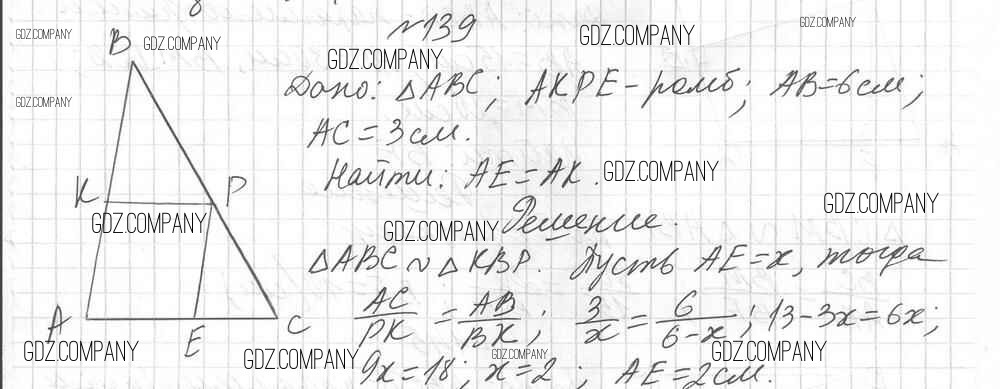 №139
Дано: △ABC; AKPE - ромб; AB=6см;
AC=3см.
Найти: AE=AK.
Решение.
△ABC ~ △KBP. Пусть AE=x, тогда
AC/PK = AB/BK; 3/x = 6/(6-x); 13-3x=6x;
9x=18; x=2; AE=2см.
B
K
P
A
E
C
GDZ.COMPANY
GDZ.COMPANY
GDZ.COMPANY
GDZ.COMPANY
GDZ.COMPANY
GDZ.COMPANY
GDZ.COMPANY
GDZ.COMPANY
GDZ.COMPANY
GDZ.COMPANY
GDZ.COMPANY
GDZ.COMPANY
GDZ.COMPANY
GDZ.COMPANY